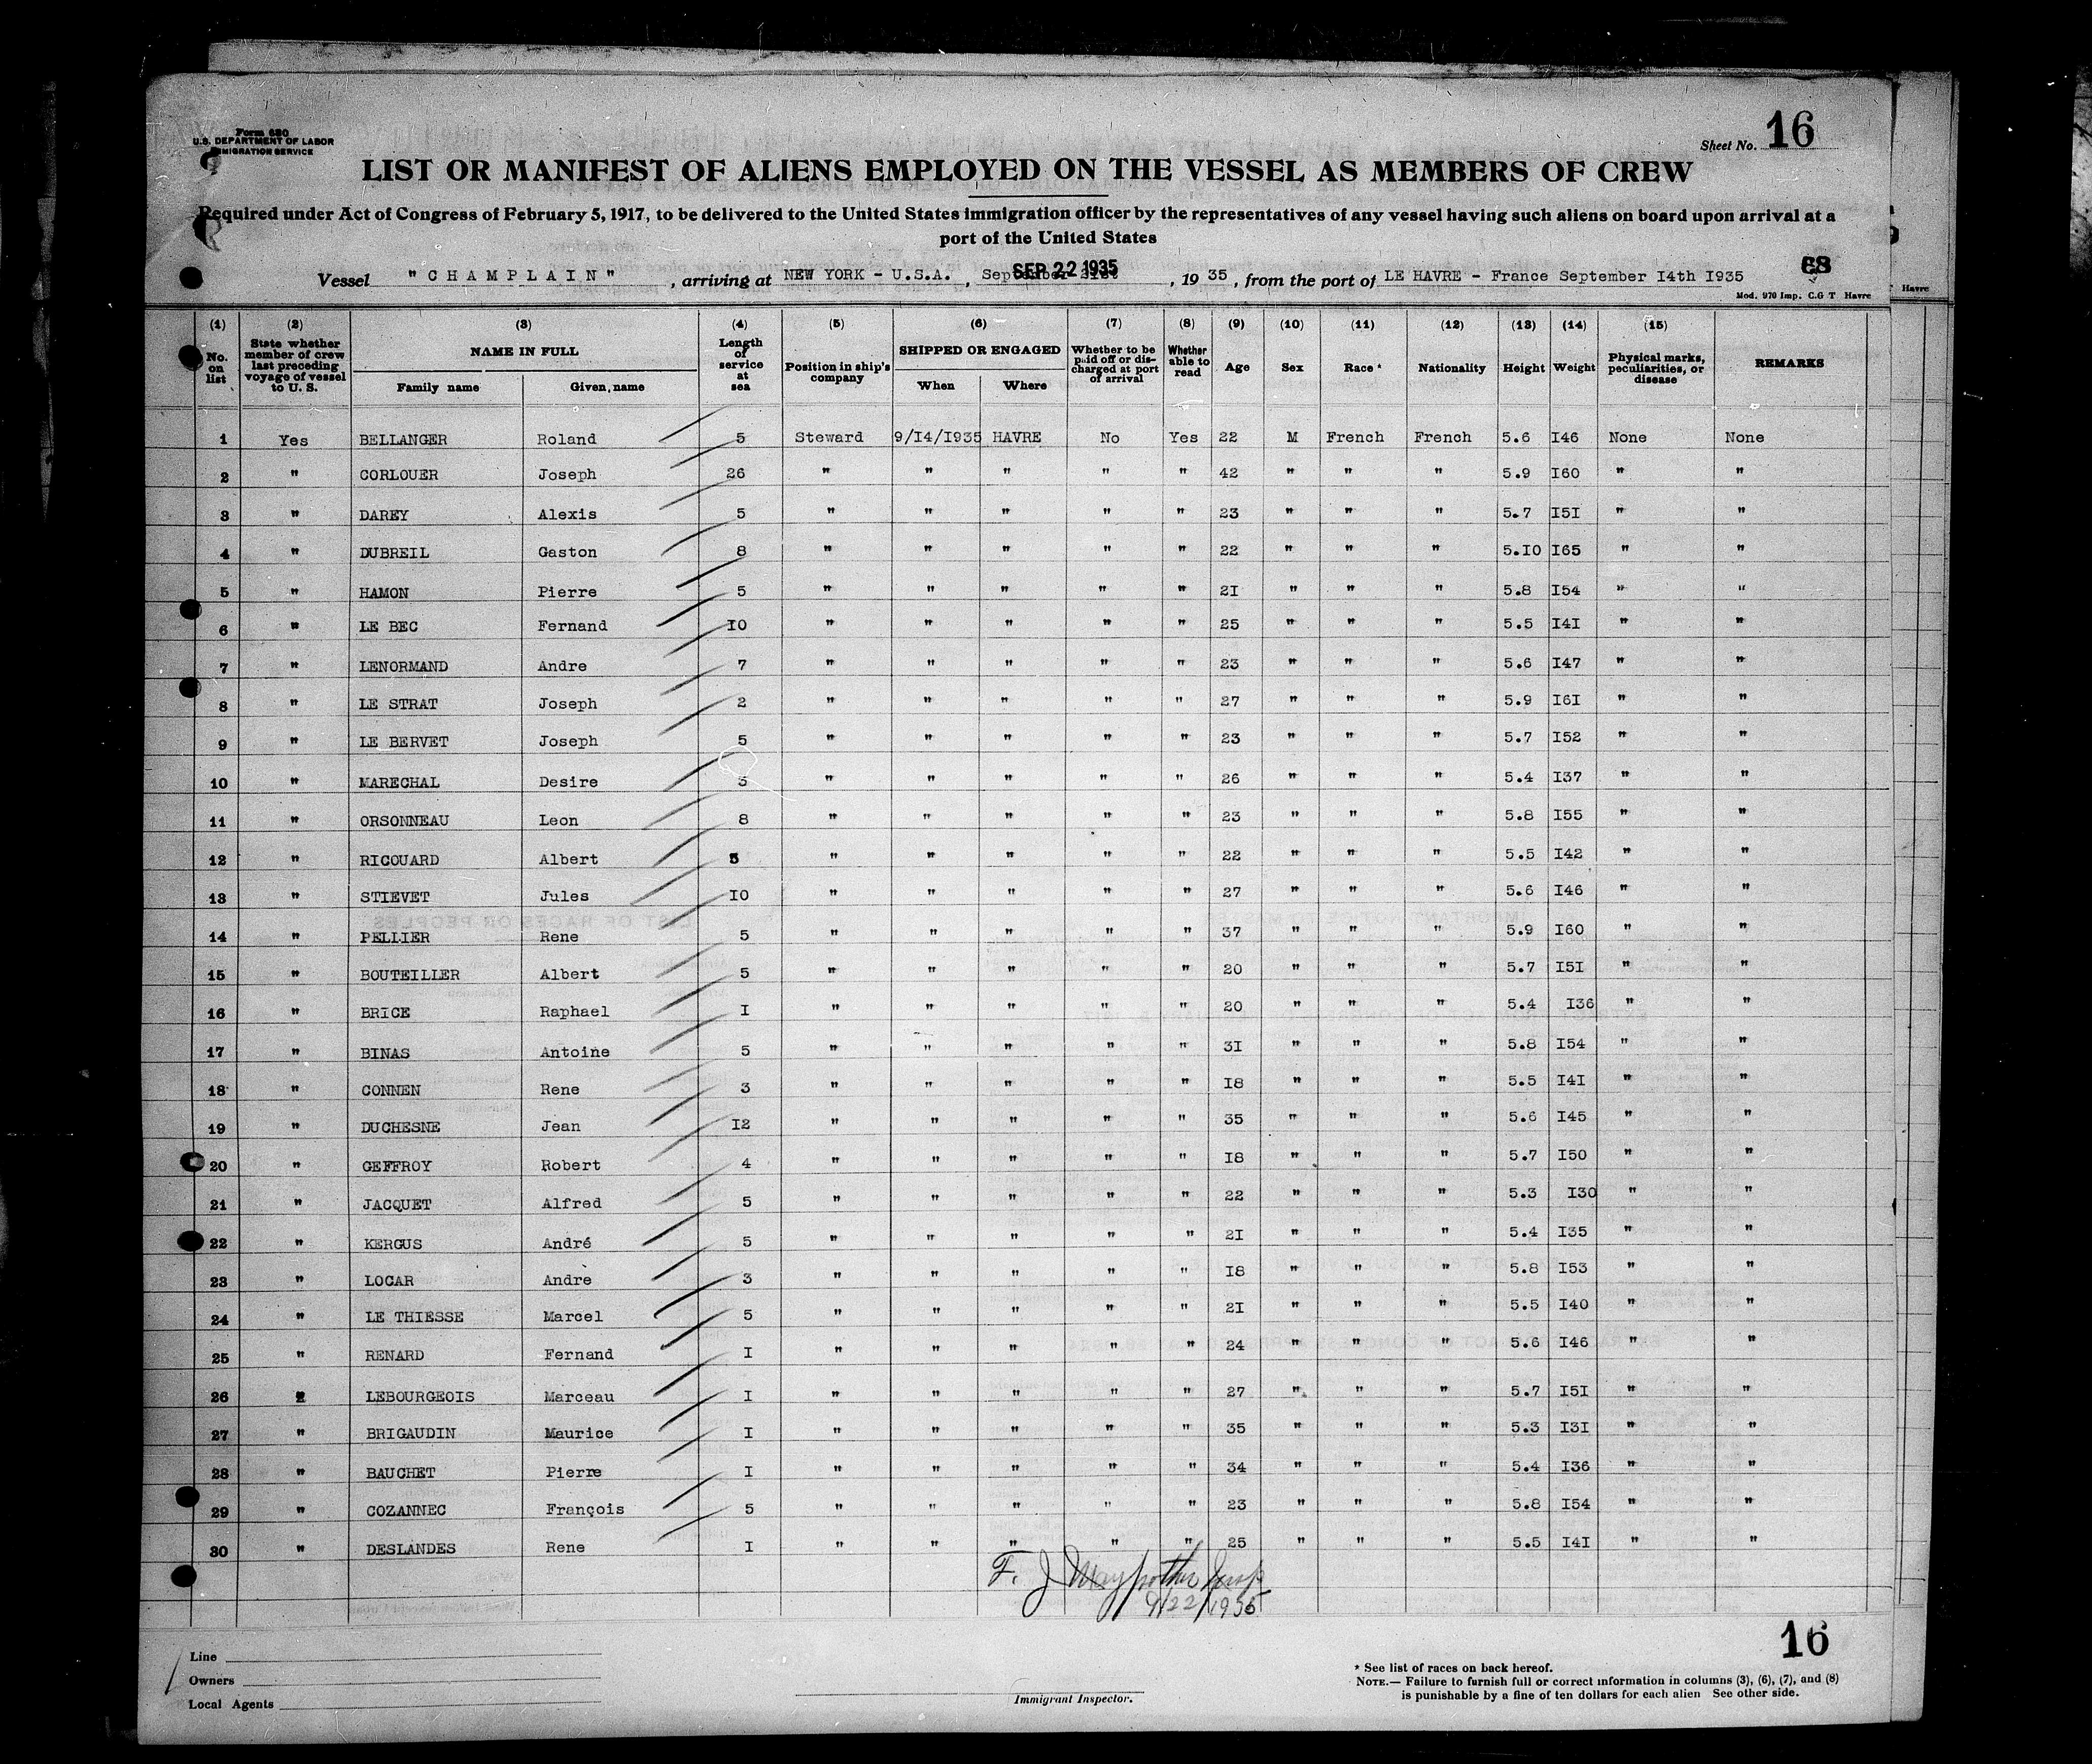 Form 680
U.S. DEPARTMENT OF LABOR
IMMIGRATION SERVICE
Sheet No. 16
LIST OR MANIFEST OF ALIENS EMPLOYED ON THE VESSEL AS MEMBERS OF CREW
Required under Act of Congress of February 5, 1917, to be delivered to the United States immigration officer by the representatives of any vessel having such aliens on board upon arrival at a
port of the United States
Vessel "CHAMPLAIN", arriving at NEW YORK - U.S.A., September 21st SEP 22 1935, 1935, from the port of LE HAVRE - France September I4th I935
68
Mod. 970 Imp. C.G T Havre
Havre
(1) (2) (3) (4) (5) (6) (7) (8) (9) (10) (11) (12) (13) (14) (15)
No. on list | State whether member of crew last preceding voyage of vessel to U. S. | NAME IN FULL Family name Given name | Length of service at sea | Position in ship's company | SHIPPED OR ENGAGED When Where | Whether to be paid off or discharged at port of arrival | Whether able to read | Age | Sex | Race * | Nationality | Height | Weight | Physical marks, peculiarities, or disease | REMARKS
1 Yes BELLANGER Roland 5 Steward 9/I4/I935 HAVRE No Yes 22 M French French 5.6 I46 None None
2 " CORLOUER Joseph 26 " " " " " 42 " " " 5.9 I60 " "
3 " DAREY Alexis 5 " " " " " 23 " " " 5.7 I5I " "
4 " DUBREIL Gaston 8 " " " " " 22 " " " 5.I0 I65 " "
5 " HAMON Pierre 5 " " " " " 2I " " " 5.8 I54 " "
6 " LE BEC Fernand I0 " " " " " 25 " " " 5.5 I4I " "
7 " LENORMAND Andre 7 " " " " " 23 " " " 5.6 I47 " "
8 " LE STRAT Joseph 2 " " " " " 27 " " " 5.9 I6I " "
9 " LE BERVET Joseph 5 " " " " " 23 " " " 5.7 I52 " "
10 " MARECHAL Desire 3 " " " " " 26 " " " 5.4 I37 " "
11 " ORSONNEAU Leon 8 " " " " " 23 " " " 5.8 I55 " "
12 " RICOUARD Albert 5 " " " " " 22 " " " 5.5 I42 " "
13 " STIEVET Jules I0 " " " " " 27 " " " 5.6 I46 " "
14 " PELLIER Rene 5 " " " " " 37 " " " 5.9 I60 " "
15 " BOUTEILLER Albert 5 " " " " " 20 " " " 5.7 I5I " "
16 " BRICE Raphael I " " " " " 20 " " " 5.4 I36 " "
17 " BINAS Antoine 5 " " " " " 3I " " " 5.8 I54 " "
18 " CONNEN Rene 3 " " " " " I8 " " " 5.5 I4I " "
19 " DUCHESNE Jean I2 " " " " " 35 " " " 5.6 I45 " "
20 " GEFFROY Robert 4 " " " " " I8 " " " 5.7 I50 " "
21 " JACQUET Alfred 5 " " " " " 22 " " " 5.3 I30 " "
22 " KERGUS André 5 " " " " " 2I " " " 5.4 I35 " "
23 " LOCAR Andre 3 " " " " " I8 " " " 5.8 I53 " "
24 " LE THIESSE Marcel 5 " " " " " 2I " " " 5.5 I40 " "
25 " RENARD Fernand I " " " " " 24 " " " 5.6 I46 " "
26 " LEBOURGEOIS Marceau I " " " " " 27 " " " 5.7 I5I " "
27 " BRIGAUDIN Maurice I " " " " " 35 " " " 5.3 I3I " "
28 " BAUCHET Pierre I " " " " " 34 " " " 5.4 I36 " "
29 " COZANNEC François 5 " " " " " 23 " " " 5.8 I54 " "
30 " DESLANDES Rene I " " " " " 25 " " " 5.5 I4I " "
F. J
9/22/1935
16
Line
Owners
Local Agents
Immigrant Inspector.
* See list of races on back hereof.
NOTE.— Failure to furnish full or correct information in columns (3), (6), (7), and (8)
is punishable by a fine of ten dollars for each alien See other side.